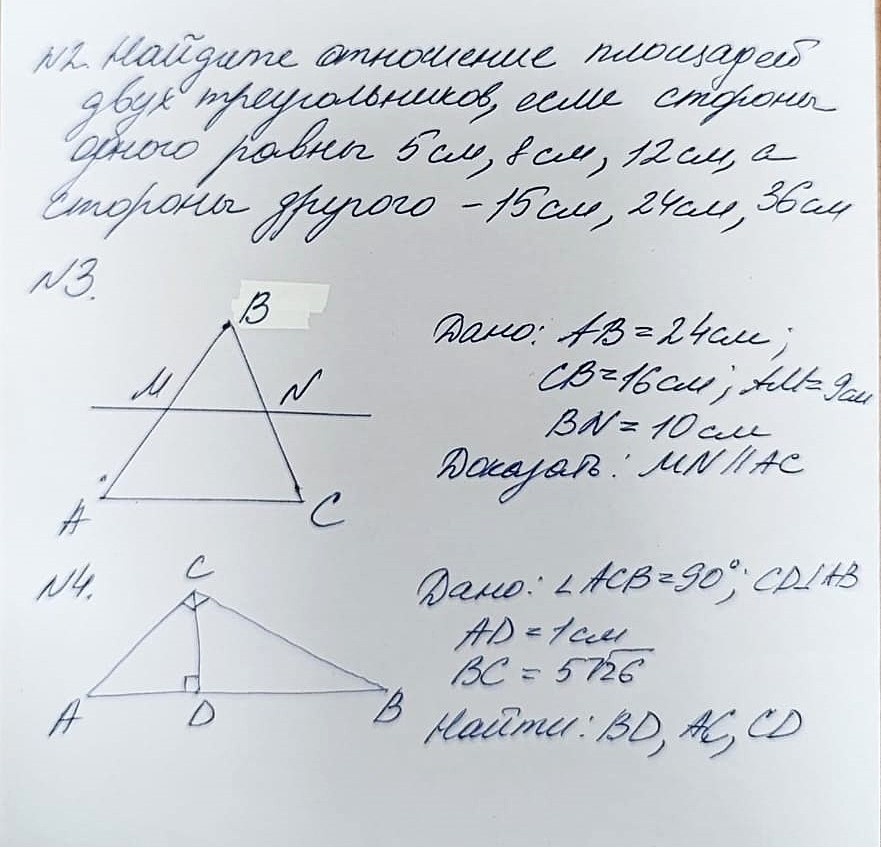 №2. Найдите отношение площадей
двух треугольников, если стороны
одного равны 5см, 8см, 12см, а
стороны другого – 15см, 24см, 36см
№3.
B
M
N
A
C
Дано: AB=24см;
CB=16см; AM=9см
BN=10см
Доказать: MN||AC
№4.
C
A
D
B
Дано: ∠ACB=90°; CD⊥AB
AD=1см
BC=5√26
Найти: BD, AC, CD